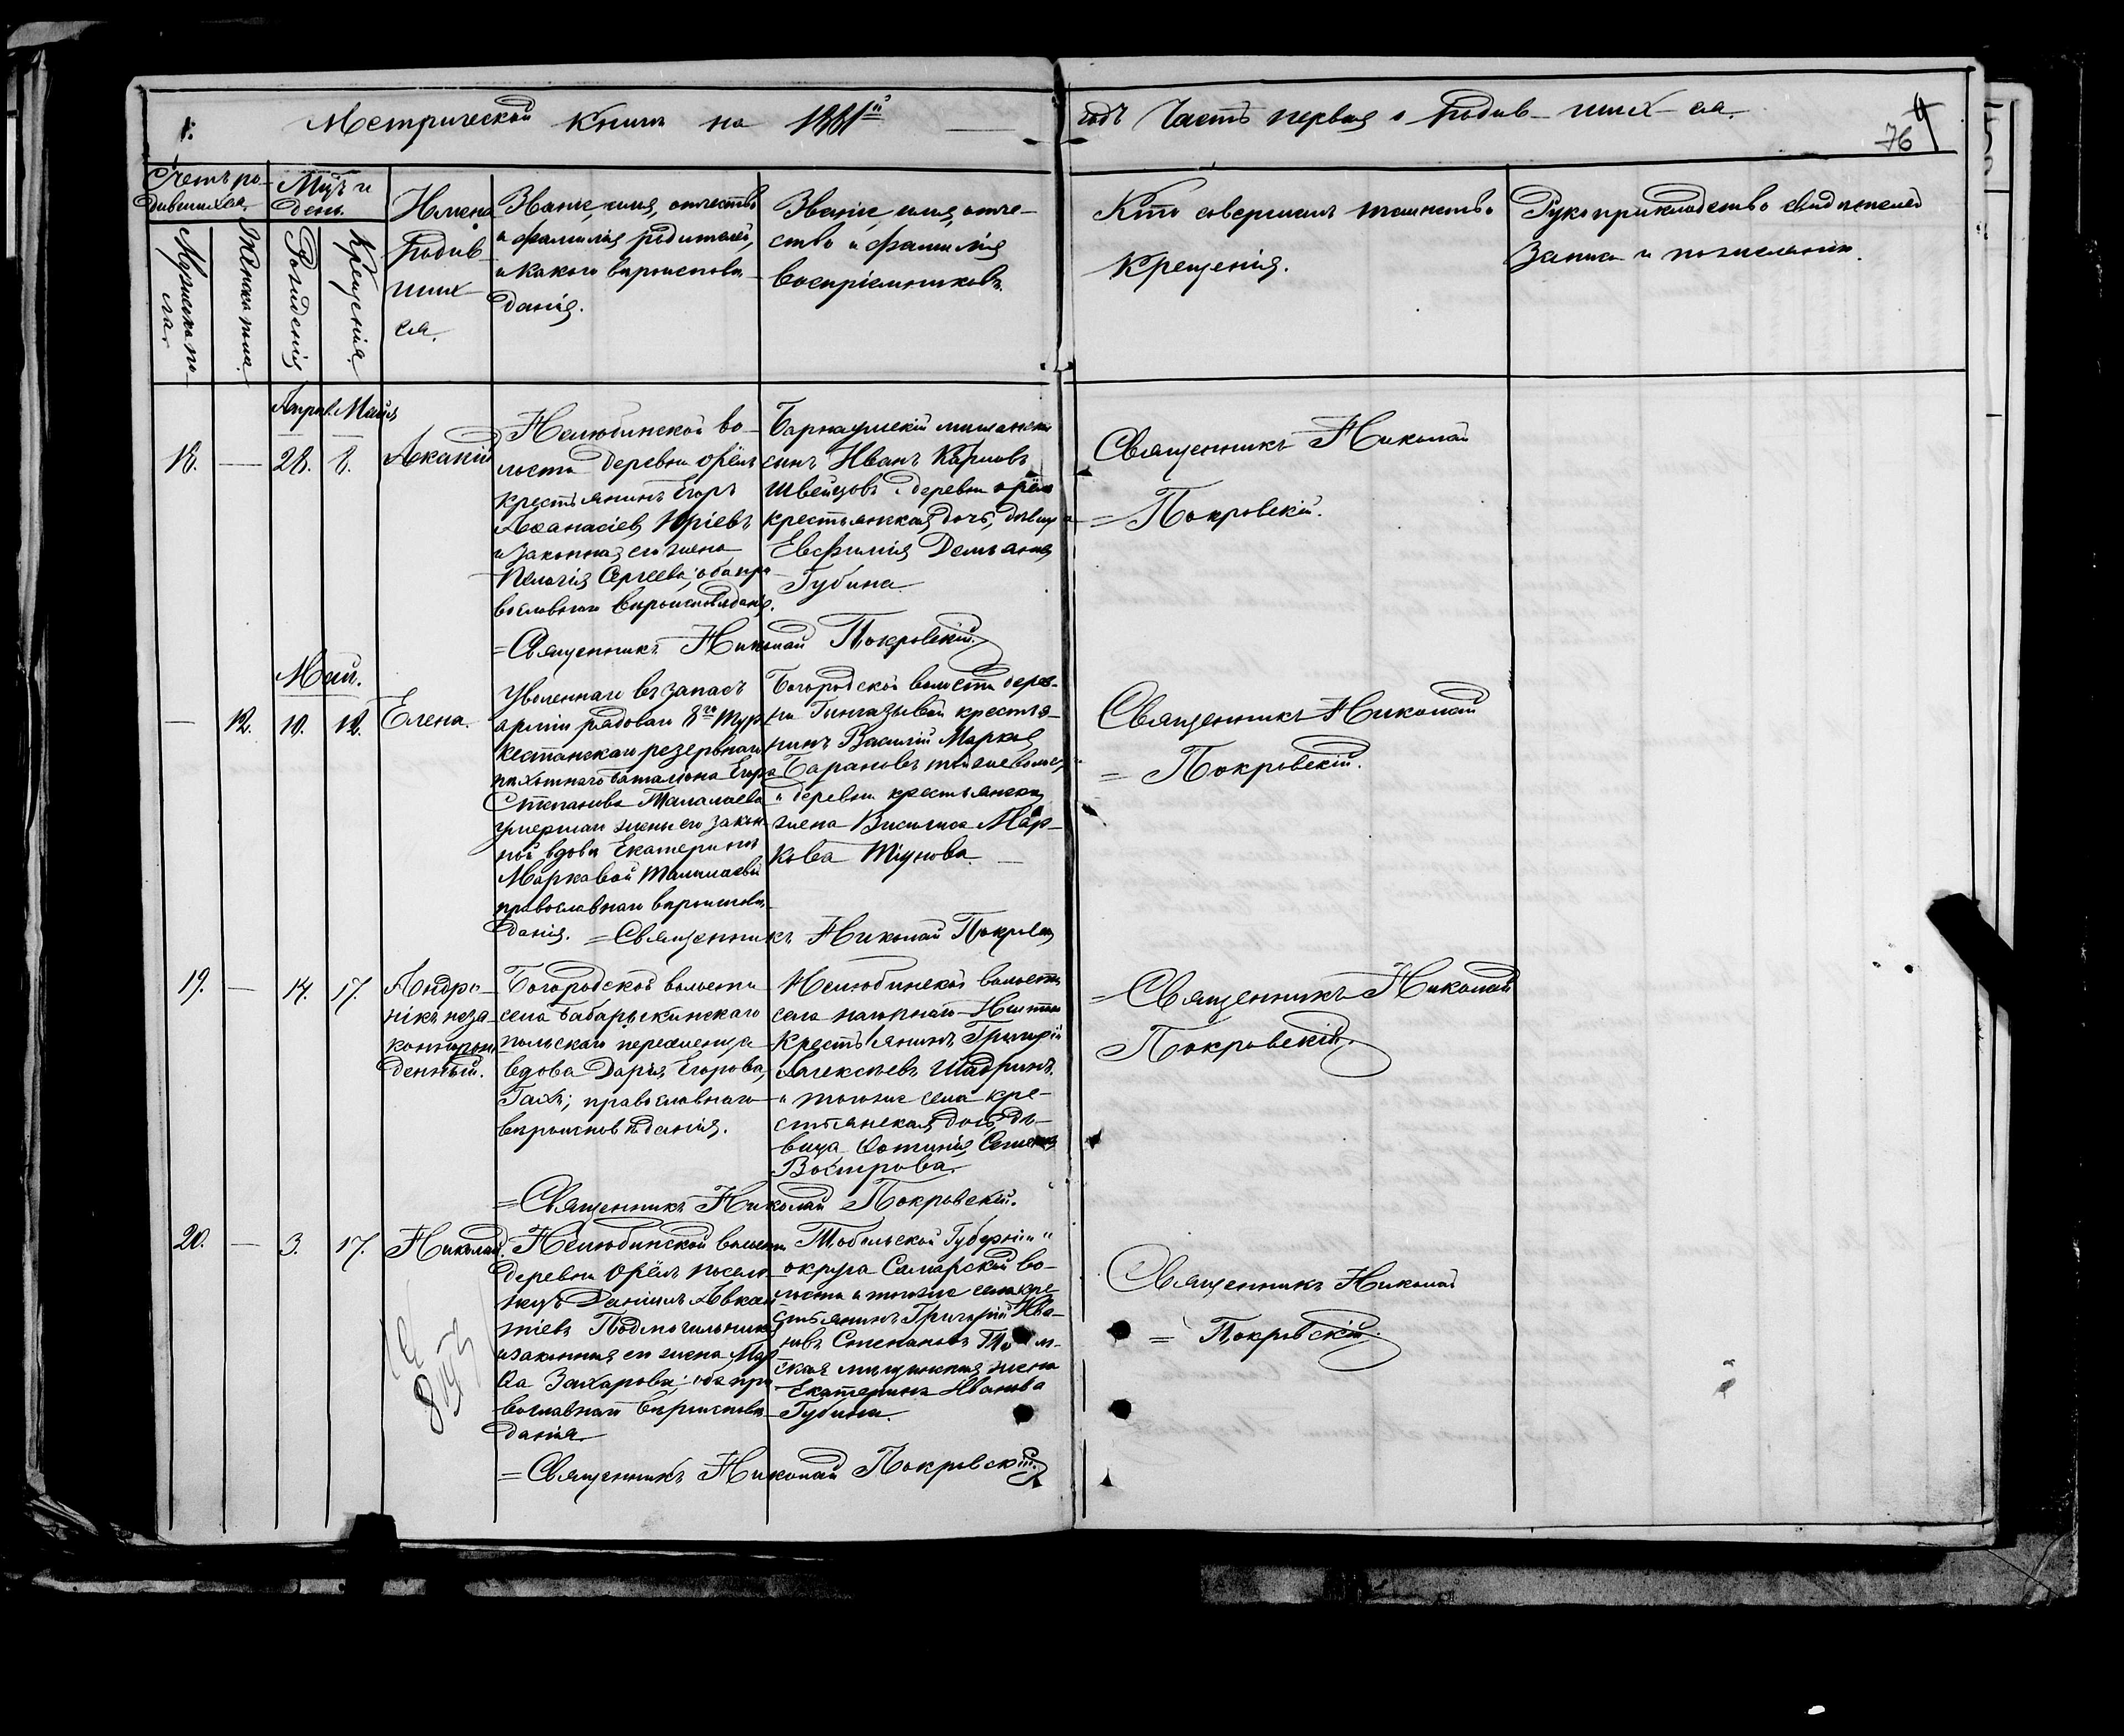 Метрической книги на 1881й
годъ Часть первая о Родив- ших- ся.
76
Счетъ ро-
дившихся.
Мужеска по-
ла.
Женска пола.
Мцъ и
день.
Рожденія
Крещенія.
Имена
Родив-
ших-
ся.
Званіе, имя, отчество
и фамилія родителей,
и какого вѣроисповѣ-
данія.
Званіе, имя, отче-
ство и фамилія
воспріемниковъ.
Кто совершалъ таинство
Крещенія.
Рукоприкладство свидѣтелей
записи по желанію.
Апрѣл. Маія
18. — 28. 8. Акакій
Нелюбинской во-
лости деревни Орёлъ
крестьянинъ Егоръ
Аѳанасіевъ Юріевъ
и законная его жена
Пелагія Сергѣева; оба пра
вославнаго вѣроисповѣданія.
Барнаульскій мѣщанскій
сынъ Иванъ Карповъ
Швецовъ и деревни Орёлъ
крестьянская дочь, дѣвица
Евфимія Демьянова
Губина
Священникъ Николай
= Покровскій.
= Священникъ Николай Покровскій.
Май.
— 12. 10. 12. Елена.
Уволеннаго въ запасъ
арміи рядоваго 8го Тур
кестанскаго резервнаго
пѣхотнаго баталіона Егора
Степанова Талалаева
умершаго жены его закон-
ной вдовы Екатерины
Марковой Талалаевой
православнаго вѣроисповѣ-
данія.
Богородской волости дерев-
ни крестья-
нинъ Василій Марковъ
Барановъ той же волости
и деревни крестьянская
жена Василиса Мар-
кова
Священникъ Николай
= Покровскій.
= Священникъ Николай Покровскій
19. — 14. 17. Андро-
никъ неза-
коннорож-
денный.
Богородской волости
села Бабарыкинскаго
польскаго переселенца
вдова Дарія Егорова
православнаго
вѣроисповѣданія.
Нелюбинской волости
села
крестьянинъ Григорій
Алексѣевъ Шадринъ
и того же села кре-
стьянская дочь дѣ-
вица Фотинія
Вострова.
= Священникъ Николай
Покровскій.
= Священникъ Николай Покровскій.
20. — 3. 17. Николай.
Нелюбинской волости
деревни Орёлъ поселе-
нецъ Даніилъ Авксен
тіевъ Подмогильниковъ
и законная его жена Мар
ѳа Захарова; оба пра
вославнаго вѣроисповѣ-
данія.
Тобольской Губерніи и
округа Самарской во-
лости и того же села кре-
стьянинъ Григорій Ива-
новъ Степановъ
ская мѣщанская жена
Екатерина Иванова
Губина.
Священникъ Николай
= Покровскій.
= Священникъ Николай Покровскій.